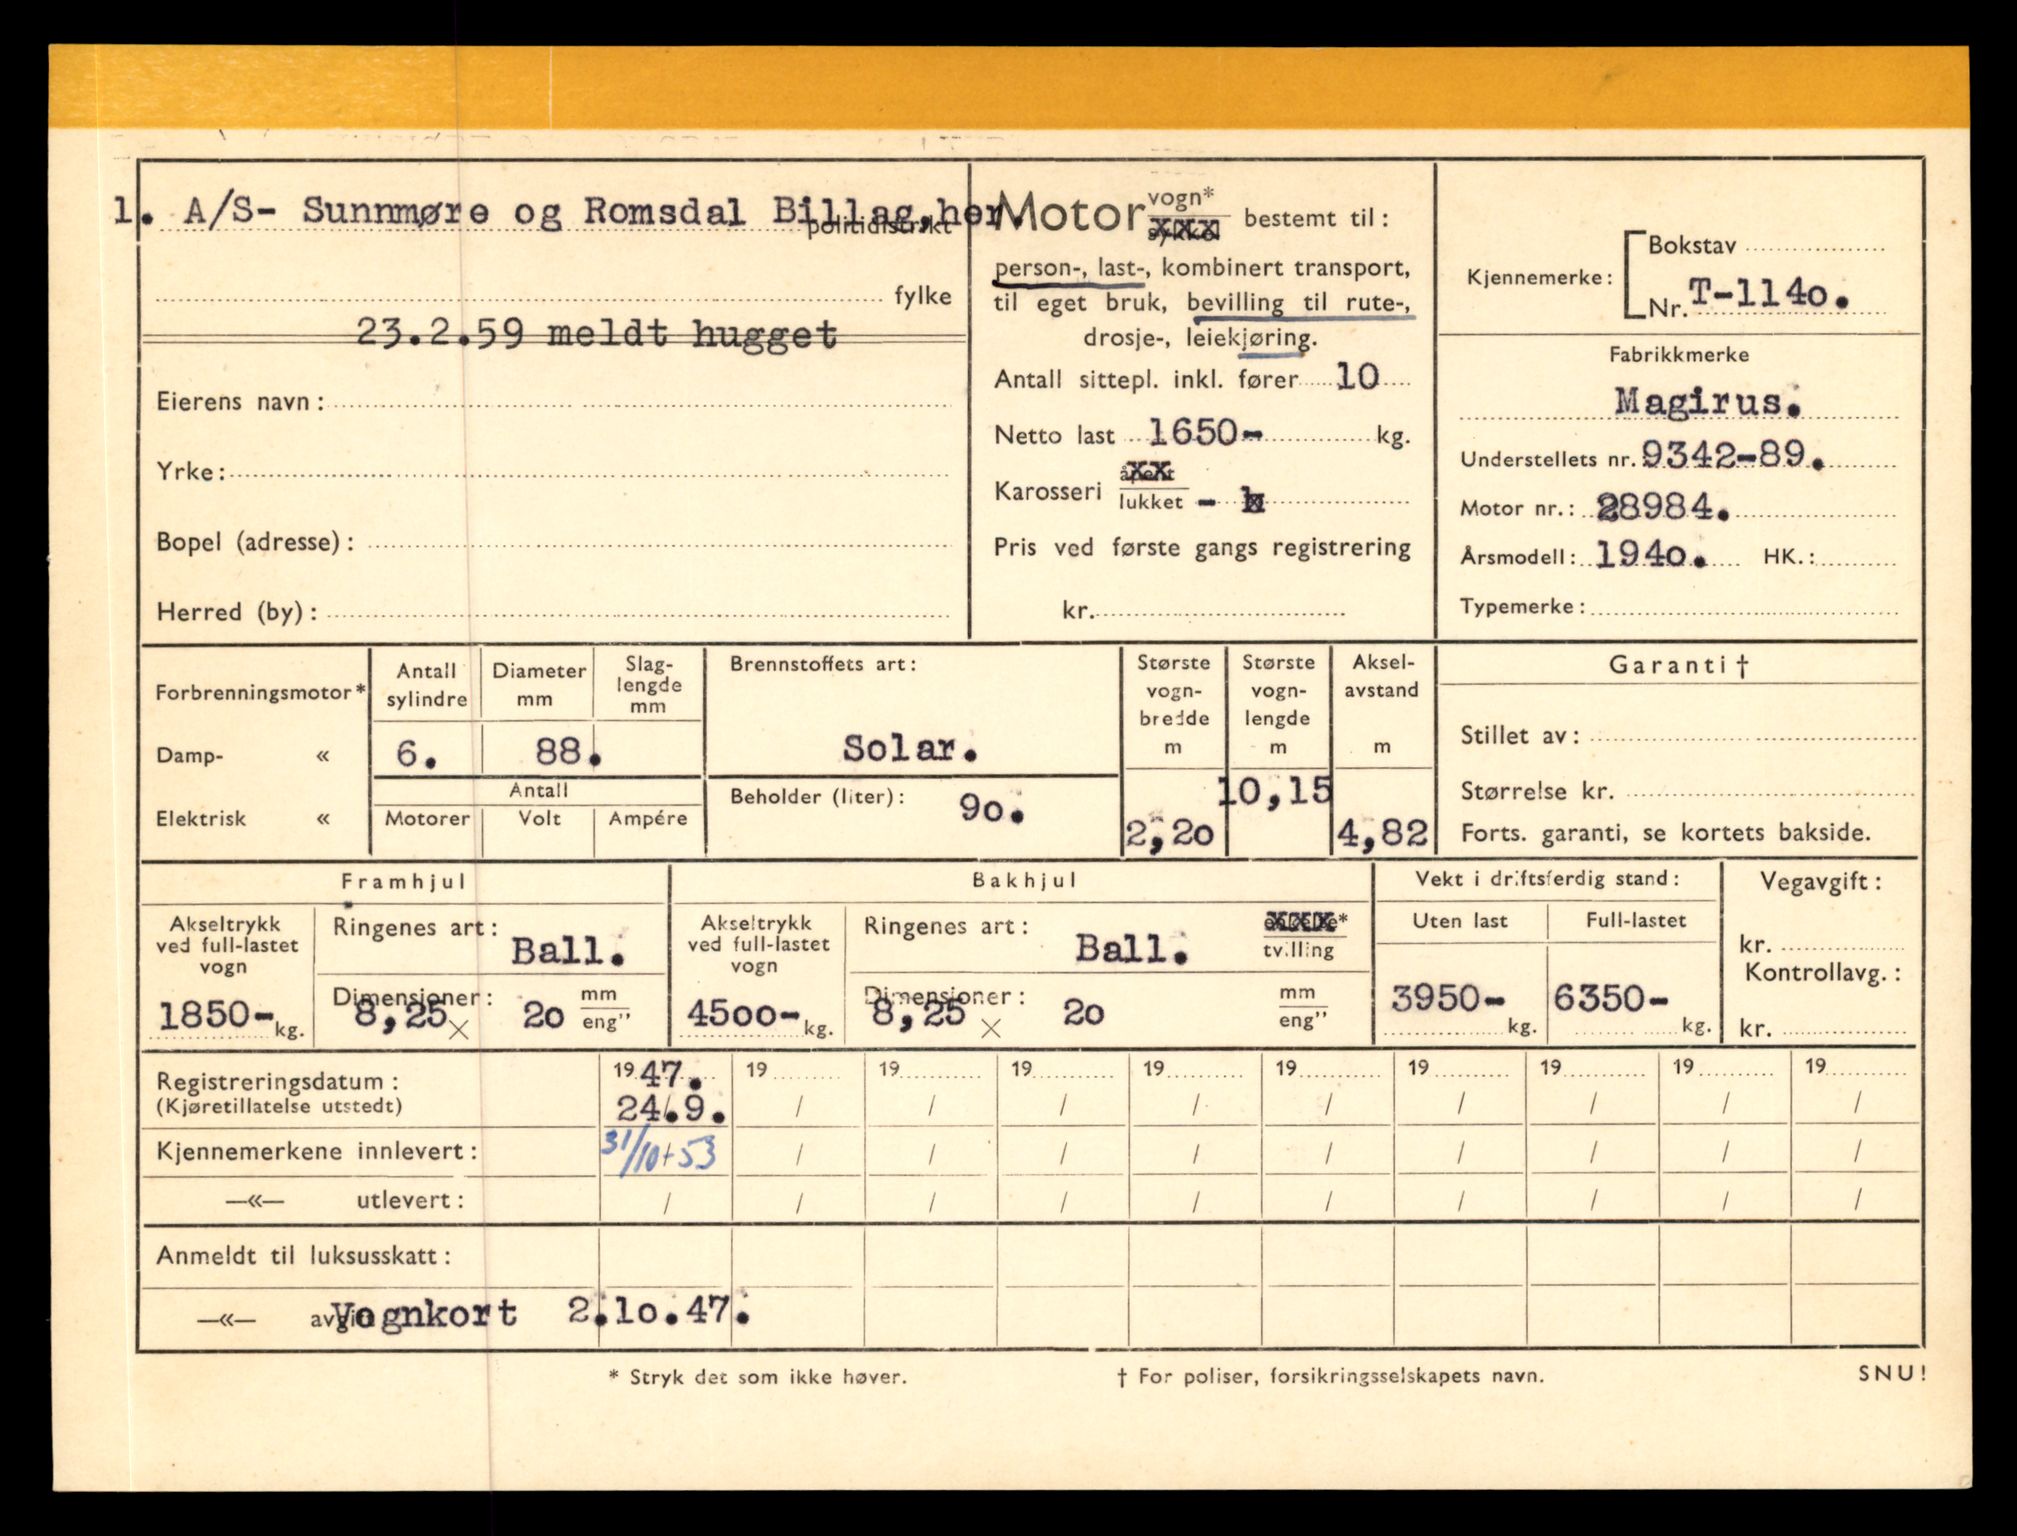 1. A/S- Sunnmøre og Romsdal Billag, her.
politidistrikt
fylke
23.2.59 meldt hugget
Eierens navn:
Yrke:
Bopel (adresse):
Herred (by):
Motor vogn* bestemt til:
person-, last-, kombinert transport,
til eget bruk, bevilling til rute-,
drosje-, leiekjøring.
Antall sittepl. inkl. fører 10
Netto last 1650- kg.
Karosseri åpent
lukket -
Pris ved første gangs registrering
kr.
Kjennemerke: Bokstav
Nr. T-1140.
Fabrikkmerke
Magirus.
Understellets nr. 9342-89.
Motor nr.: 28984.
Årsmodell: 1940. HK.:
Typemerke:
Forbrenningsmotor*
Damp- «
Elektrisk «
Antall sylindre
6.
Diameter mm
88.
Slag-
lengde
mm
Antall
Motorer Volt Ampére
Brennstoffets art:
Solar.
Beholder (liter): 90.
Største
vogn-
bredde
m
2,20
Største
vogn-
lengde
m
10,15
Aksel-
avstand
m
4,82
Garanti †
Stillet av:
Størrelse kr.
Forts. garanti, se kortets bakside.
Framhjul
Akseltrykk
ved full-lastet
vogn
1850- kg.
Ringenes art: Ball.
Dimensjoner:
8,25 × 20 mm
eng"
Bakhjul
Akseltrykk
ved full-lastet
vogn
4500- kg.
Ringenes art: Ball. enkelte*
tvilling
Dimensjoner:
8,25 × 20 mm
eng"
Vekt i driftsferdig stand:
Uten last Full-lastet
3950- kg. 6350- kg.
Vegavgift:
kr.
Kontrollavg.:
kr.
Registreringsdatum: 1947. 19 19 19 19 19 19 19 19 19
(Kjøretillatelse utstedt) 24/.9. / / / / / / / / /
Kjennemerkene innlevert: 31/10 + 53 / / / / / / / / /
—«— utlevert: / / / / / / / / / /
Anmeldt til luksusskatt:
—«— Vognkort 2.10.47.
* Stryk det som ikke høver. † For poliser, forsikringsselskapets navn. SNU!